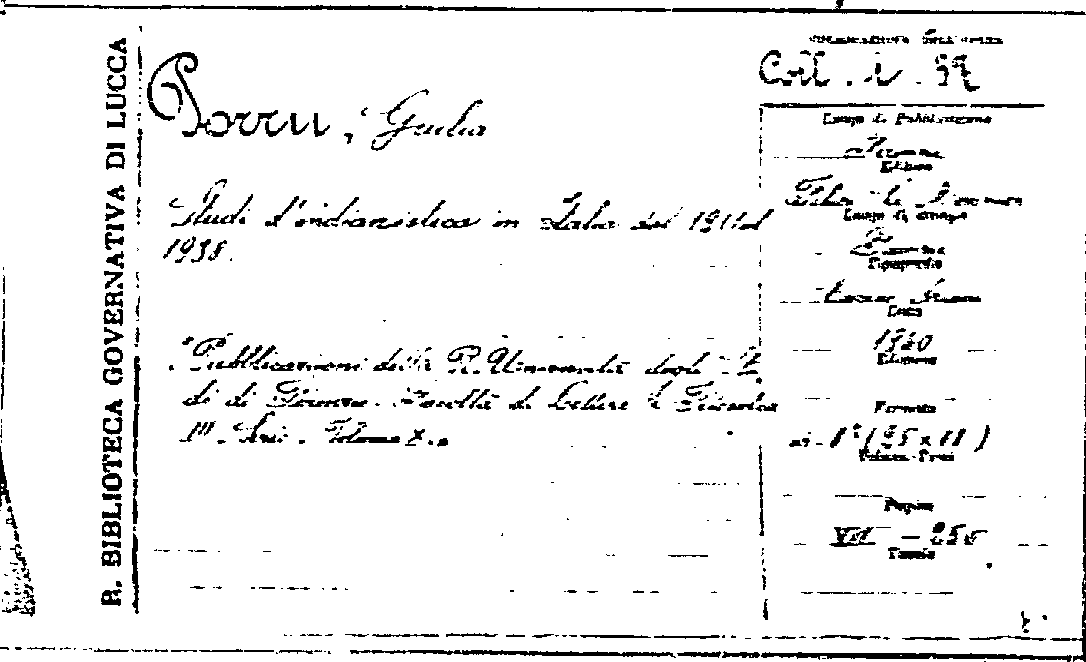 R. BIBLIOTECA GOVERNATIVA DI LUCCA
Porru, Giulia
Studi d'indianistica in Italia dal 1911 al
1938.
Pubblicazioni della R. Università degli
di di Firenze. Facoltà di Lettere e Filosofia
IIIª Serie. Volume X.
Coll.
Luogo di Pubblicazione
Firenze
Editore
Felice Le Monnier
Luogo di stampa
Firenze
Tipografia
Data
1940
Edizione
Formato
in-8° (25x18)
Pagine
VII - 250
Tavole